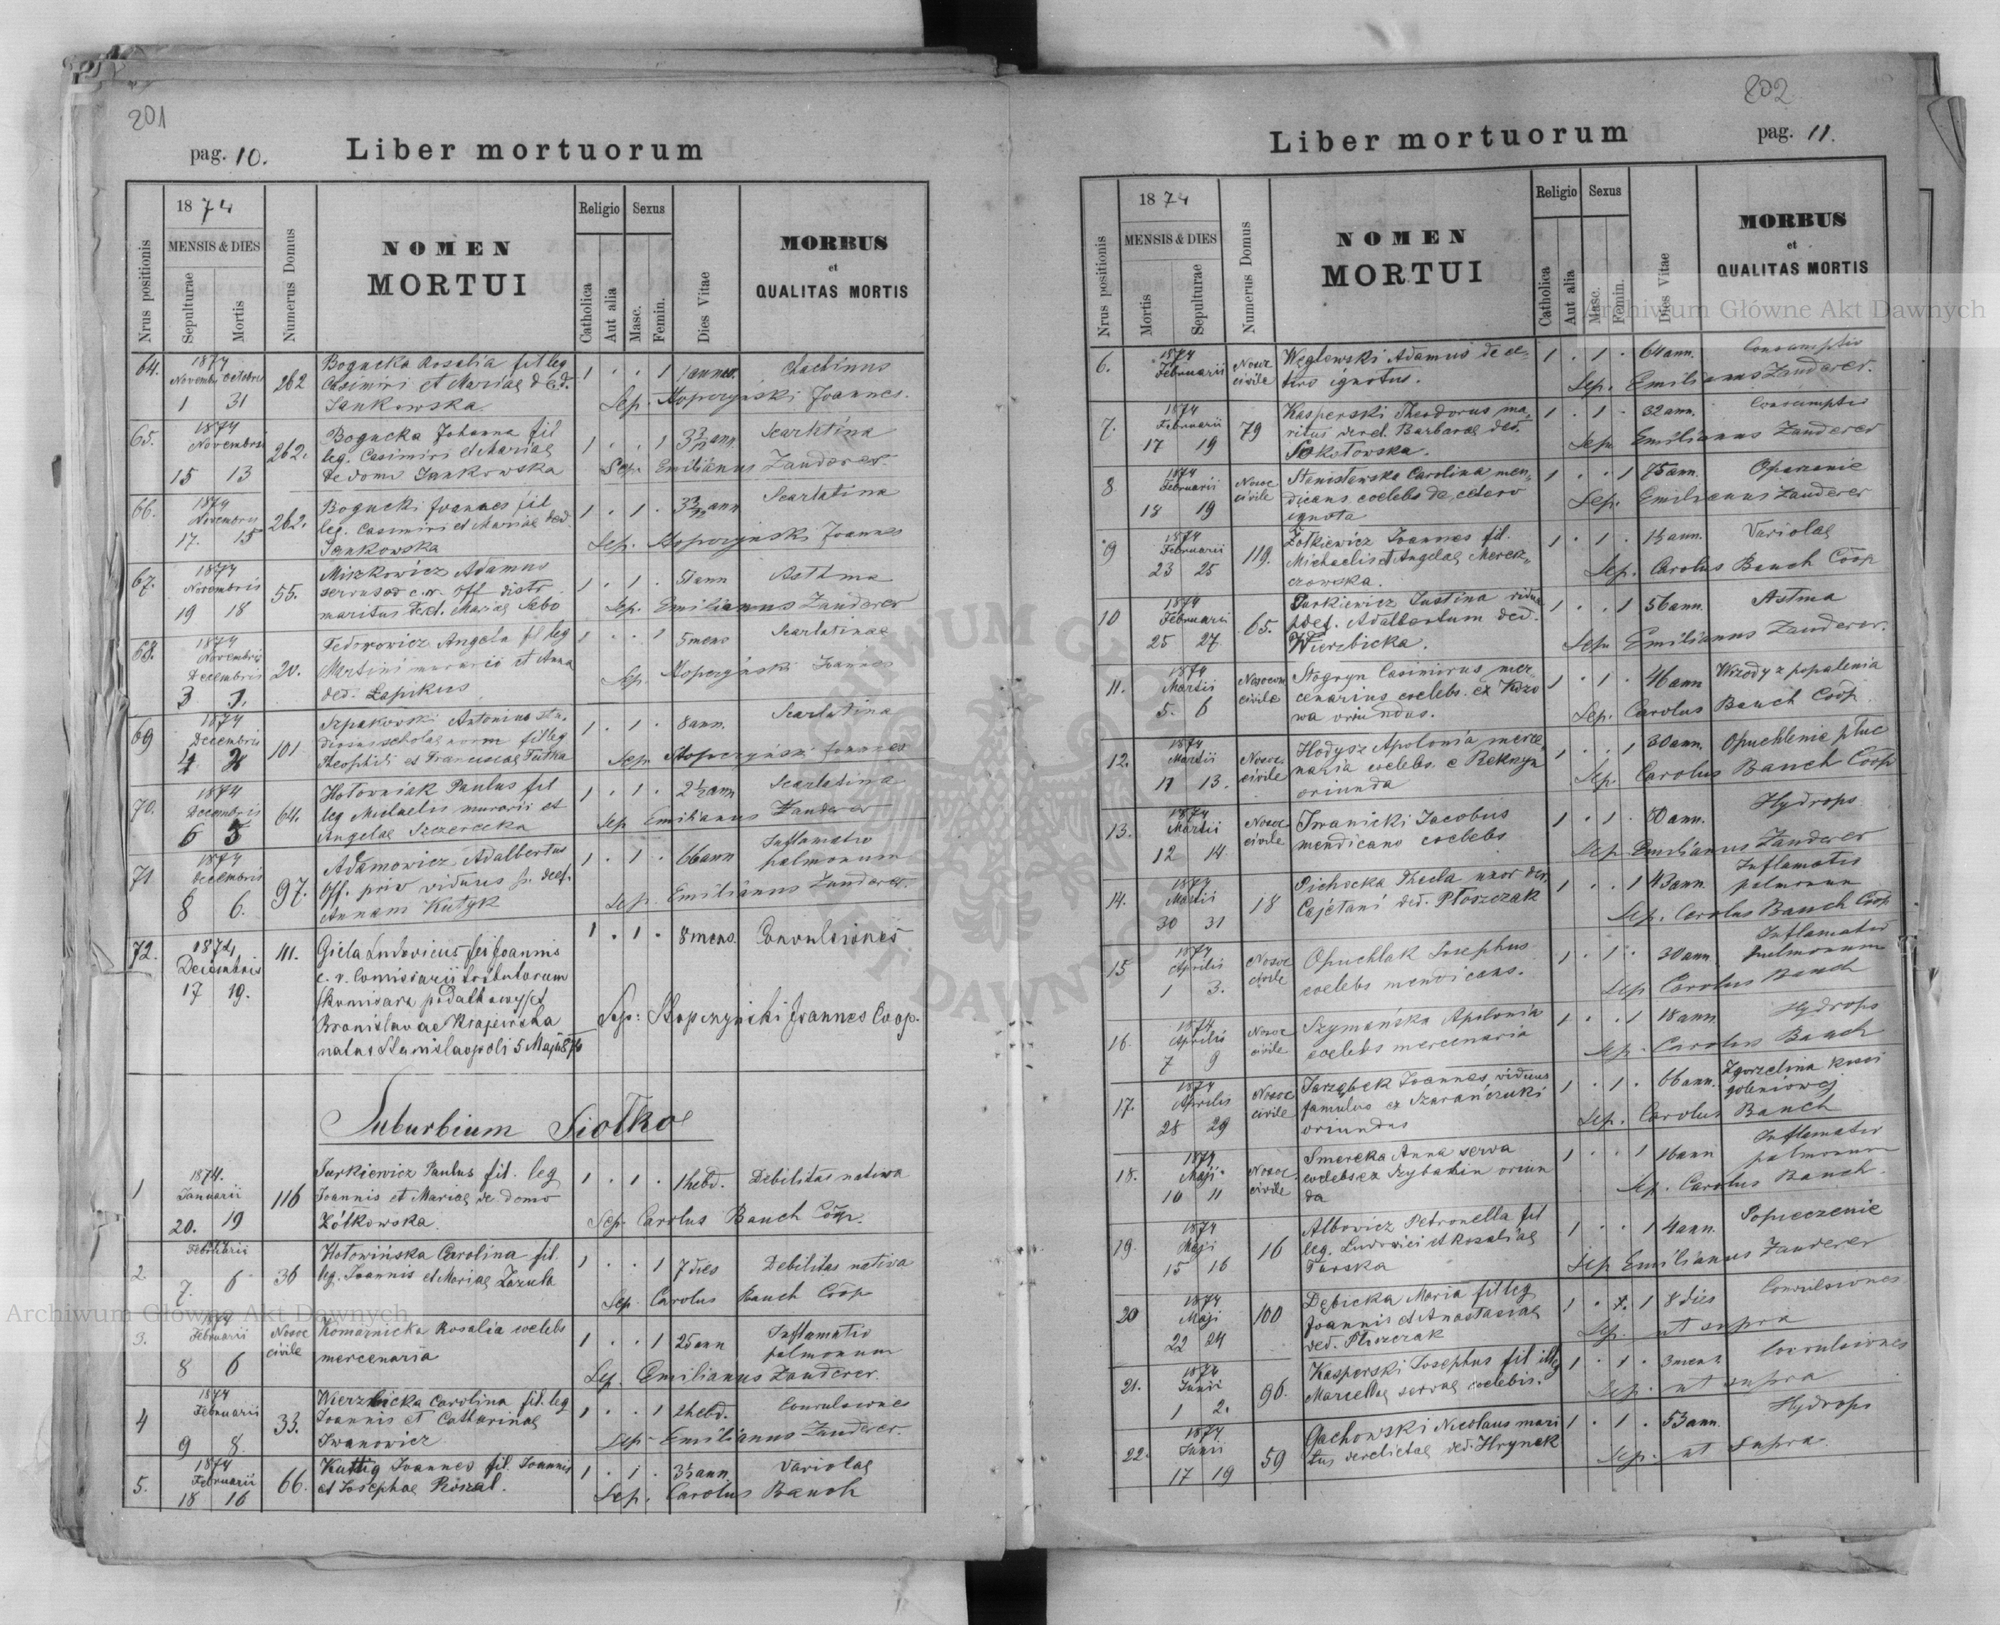 201
pag. 10.
Liber mortuorum
Nrus positionis
1874
MENSIS & DIES
Sepulturae
Mortis
Numerus Domus
NOMEN
MORTUI
Religio
Catholica
Aut alia
Sexus
Masc.
Femin.
Dies Vitae
MORBUS
et
QUALITAS MORTIS
64. 1874 Bogucka Rosalia fil leg
Novembr Octobris 262 Casimiri et Mariae de d. 1 . . 1 1 annus
1 31 Jankowska Sep. Stopczyński Joannes.
65. 1874 Bogucka Johanna fil Scarlatina
Novembris 262. leg. Casimiri et Mariae 1 . . 1
15 13 de domo Jankowska Sep. Emilianus Zanderer.
66. 1874 Bogucki Joannes fil Scarlatina
Novembris 262. leg. Casimiri et Mariae ded. 1 . 1 .
17. 15 Jankowska Sep. Stopczyński Joannes
67. 1874 Miszkowicz Adamus Asthma
Novembris 55. c. r. off distr. 1 . 1 . 51 ann
19 18 maritus Mariae Sabo Sep. Emilianus Zanderer
68. 1874 Fedorowicz Angela fil leg Scarlatinae
Novembris
Decembris 20. Martini murarii et Anna 1 . . 1 5 mens
3 1. ded. Łapikus Sep. Stopczyński Joannes
69 1874 Szpakowski Antonius Scarlatina
Decembris 101. scholae norm fil leg 1 . 1 . 8 ann.
4 2 Theophili et Franciscae Tutka Sep. Stopczyński Joannes
70. 1874 Hotowniak Paulus fil Scarlatina
Decembris 64. leg Michaelis murarii et 1 . 1 . 2½ ann
6 5 Angelae Szczerecka Sep Emilianus Zanderer
71 1874 Adamowicz Adalbertus Inflamatio
Decembris 97. off. priv viduus p. def. 1 . 1 . 66 ann pulmonum
8 6. Annam Kutyk Sep. Emilianus Zanderer.
72. 1874 111. Giela Ludovicus fil Joannis 1 . 1 . 8 mens. Convulsiones
Decembris c. r. Comissarii tributorum
17 19. /komisarz podatkowy/ et
Bronislavae Krajewska Sep: Stopczyński Joannes Coop.
natus Stanislaopoli 5 Maji 874
Suburbium Siołko
1 1874. Turkiewicz Paulus fil. leg
Januarii 116 Joannis et Mariae de domo 1 . 1 . 1 hebd. Debilitas nativa
20. 19 Żółkowska. Sep. Carolus Bauch Coop.
2 Februarii 36 Hotowińska Carolina fil. 1 . . 1 7 dies Debilitas nativa
7. 6 leg. Joannis et Mariae Zazula Sep. Carolus Bauch Coop
3. 1874 Nosoc Komarnicka Rosalia coelebs Inflamatio
Februarii civile mercenaria 1 . . 1 25 ann pulmonum
8 6 Sep. Emilianus Zanderer.
4 1874 Wierzbicka Carolina fil. leg Convulsiones
Februarii 33. Joannis et Catharinae 1 . . 1 2 hebd.
9 8. Iwanowicz Sep. Emilianus Zanderer.
5. 1874 Kuttig Joannes fil. Joannis Variolae
Februarii 66. et Josephae Röszel. 1 . 1 . 3½ ann.
18 16 Sep. Carolus Bauch
202
Liber mortuorum
pag. 11.
Nrus positionis
1874
MENSIS & DIES
Mortis
Sepulturae
Numerus Domus
NOMEN
MORTUI
Religio
Catholica
Aut alia
Sexus
Masc.
Femin.
Dies Vitae
MORBUS
et
QUALITAS MORTIS
6. 1874 Nosoc Węglewski Adamus de ce- 1 . 1 . 64 ann. Consumptio
Februarii civile tero ignotus. Sep. Emilianus Zanderer.
7. 1874 Kasperski Theodorus ma- 1 . 1 . 32 ann. Consumptio
Februarii 79 ritus derel. Barbarae ded.
17 19 Sokołowska. Sep. Emilianus Zanderer
8 1874 Nosoc Stanisławska Carolina men- 1 . . 1 75 ann. Oparzenie
Februarii civile dicans coelebs de cetero
18 19 ignota Sep. Emilianus Zanderer
9 1874 Żołkiewicz Joannes fil. 1 . 1 . 1½ ann. Variolae
Februarii 119. Michaelis et Angelae Merez-
23 25 czowska. Sep. Carolus Bauch Coop
10 1874 Turkiewicz Justina vidua 1 . . 1 56 ann. Astma
Februarii 65. pdef. Adalbertum ded.
25 27. Wierzbicka. Sep. Emilianus Zanderer.
11. 1874 Nosocom Nogryn Casimirus mer- 1 . 1 . 46 ann Wrzody z popalenia
Martii civile cenarius coelebs. ex Kozo
5. 6 wa oriundus. Sep. Carolus Bauch Coop.
12. 1874 Nosoc. Hodysz Apolonia merce- 1 . . 1 30 ann. Opuchlenie płuc
Martii civile naria coelebs. e Reknyn
11 13. oriunda Sep. Carolus Bauch Coop
13. 1874 Nosoc Iwanicki Jacobus 1 . 1 . 70 ann. Hydrops
Martii civile mendicans coelebs
12 14 Sep. Emilianus Zanderer
14. 1874 Pichocka Thecla uxor der. 1 . . 1 43 ann. Inflamatio
Martii 18 Cajetani ded. Płoszczak pulmonum
30 31 Sep. Carolus Bauch Coop
15 1874 Nosoc Opuchlak Josephus 1 . 1 . 30 ann. Inflamatio
Aprilis civile coelebs mendicans. pulmonum
1 3. Sep Carolus Bauch
16. 1874 Nosoc Szymańska Apolonia 1 . . 1 18 ann. Hydrops
Aprilis civile coelebs mercenaria
7 9 Sep. Carolus Bauch
17. 1874 Nosoc Jarząbek Joannes viduus 1 . 1 . 66 ann. Zgorzelina kości
Aprilis civile famulus ex Szarańczuki goleniowej
28 29 oriundus Sep. Carolus Bauch
18. 1874 Nosoc. Smereka Anna serva 1 . . 1 16 ann Inflamatio
Maji civile coelebs ex Szybalin oriun pulmonum
10 11 da Sep. Carolus Bauch.
19. 1874 Albowicz Petronella fil 1 . . 1 4 ann. Popieczenie
Maji 16 leg. Ludovici et Rosaliae
15 16 Turska Sep Emilianus Zanderer
20 1874 Dębicka Maria fil leg 1 . . 1 8 dies Convulsiones
Maji 100 Joannis et Anastasiae
22 24 ded. Płoszczak Sep. ut supra
21. 1874 Kasperski Josephus fil illeg 1 . 1 . 3 mens Convulsiones
Junii 96. Marcellae servae coelebis.
1 2. Sep. ut supra
22. 1874 Gachowski Nicolaus mari 1 . 1 . 53 ann. Hydrops
Junii 59 tus derelictae ded. Hrynak
17 19 Sep. ut Supra
Archiwum Główne Akt Dawnych
Archiwum Główne Akt Dawnych